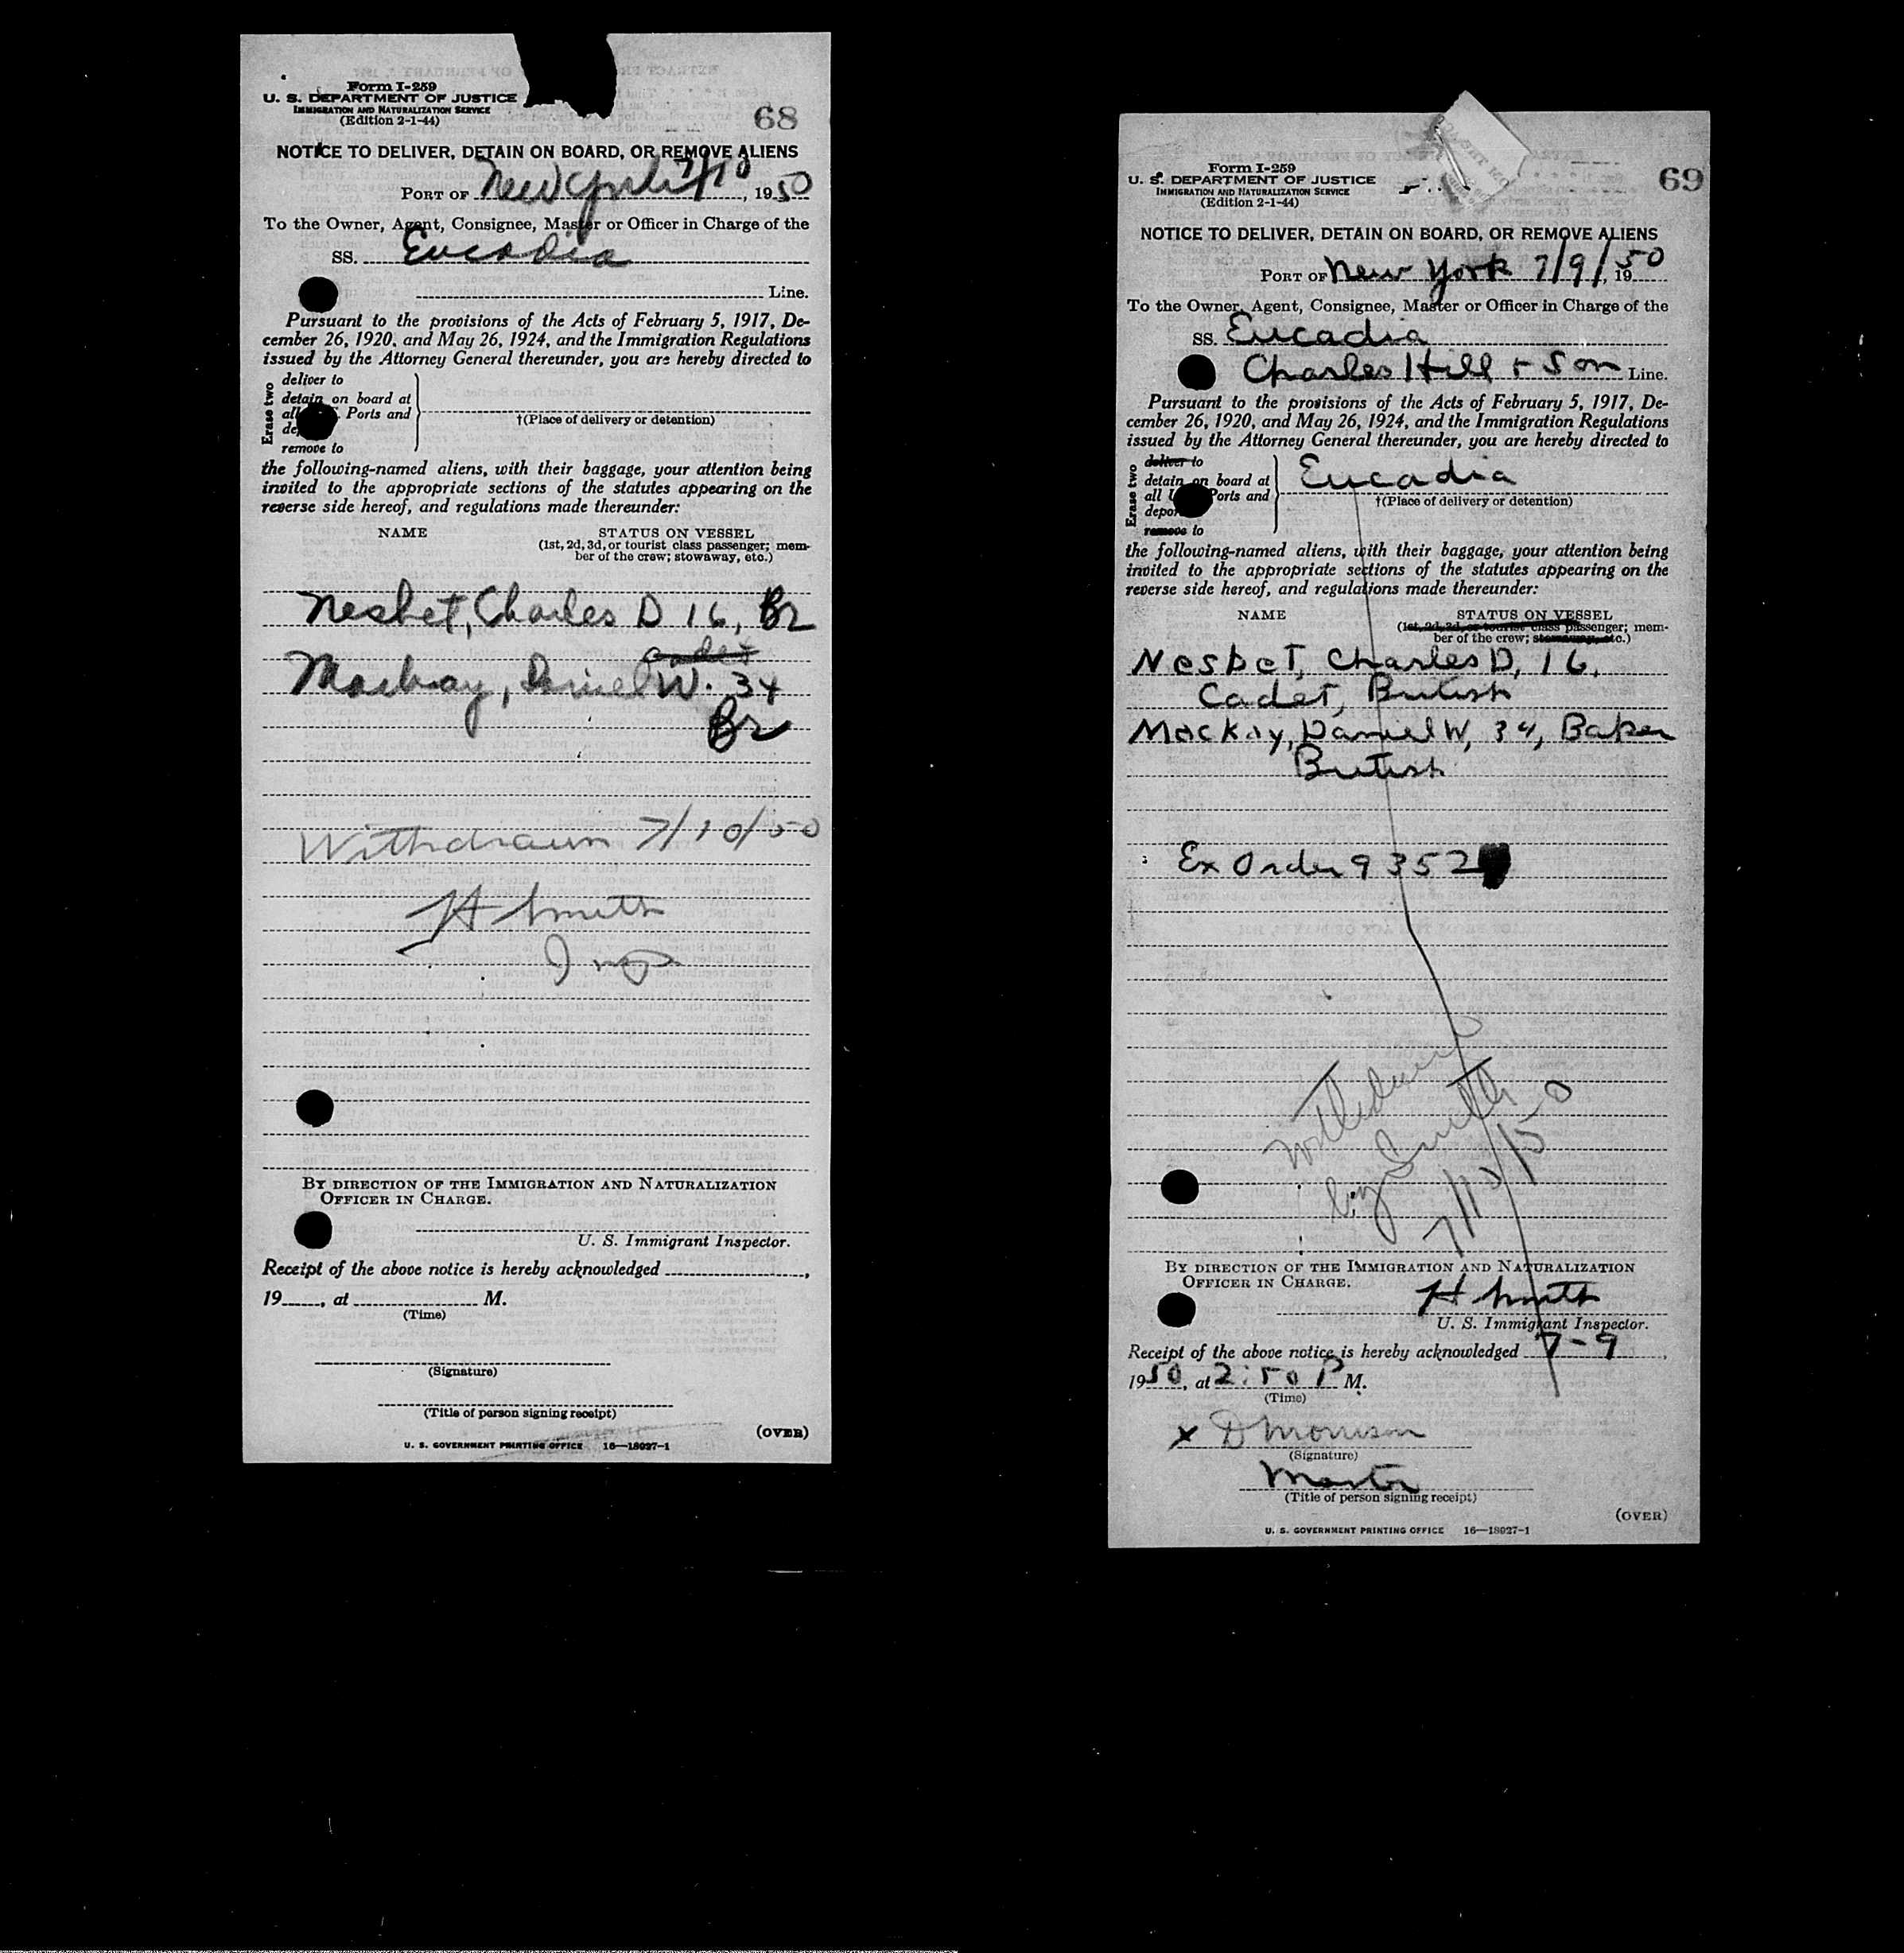 Form I-259
U. S. DEPARTMENT OF JUSTICE
IMMIGRATION AND NATURALIZATION SERVICE
(Edition 2-1-44)
68
NOTICE TO DELIVER, DETAIN ON BOARD, OR REMOVE ALIENS
PORT OF New York 7/10, 1950
To the Owner, Agent, Consignee, Master or Officer in Charge of the
SS. Eucadia
Line.
Pursuant to the provisions of the Acts of February 5, 1917, De-
cember 26, 1920, and May 26, 1924, and the Immigration Regulations
issued by the Attorney General thereunder, you are hereby directed to
Erase two
deliver to
detain on board at
all Ports and
remove to
†(Place of delivery or detention)
the following-named aliens, with their baggage, your attention being
invited to the appropriate sections of the statutes appearing on the
reverse side hereof, and regulations made thereunder:
NAME STATUS ON VESSEL
(1st, 2d, 3d, or tourist class passenger; mem-
ber of the crew; stowaway, etc.)
Nesbet, Charles D 16, Br
cadet
Mackay, Daniel W. 34
Br
Withdrawn 7/10/50
H Smith
Insp
BY DIRECTION OF THE IMMIGRATION AND NATURALIZATION
OFFICER IN CHARGE.
U. S. Immigrant Inspector.
Receipt of the above notice is hereby acknowledged ,
19 , at M.
(Time)
(Signature)
(Title of person signing receipt)
(OVER)
U. S. GOVERNMENT PRINTING OFFICE 16—18027-1
Form I-259
U. S. DEPARTMENT OF JUSTICE
IMMIGRATION AND NATURALIZATION SERVICE
(Edition 2-1-44)
69
NOTICE TO DELIVER, DETAIN ON BOARD, OR REMOVE ALIENS
PORT OF New York 7/9/, 1950
To the Owner, Agent, Consignee, Master or Officer in Charge of the
SS. Eucadia
Charles Hill + Son Line.
Pursuant to the provisions of the Acts of February 5, 1917, De-
cember 26, 1920, and May 26, 1924, and the Immigration Regulations
issued by the Attorney General thereunder, you are hereby directed to
Erase two
deliver to
detain on board at
all U Ports and
depor
remove to
Eucadia
†(Place of delivery or detention)
the following-named aliens, with their baggage, your attention being
invited to the appropriate sections of the statutes appearing on the
reverse side hereof, and regulations made thereunder:
NAME STATUS ON VESSEL
(1st, 2d, 3d, or tourist class passenger; mem-
ber of the crew; stowaway, etc.)
Nesbet, Charles D, 16,
Cadet, British
Mackay, Daniel W, 34, Baker
British
Ex Order 9352
Withdrawn
by Smith
7/10/50
BY DIRECTION OF THE IMMIGRATION AND NATURALIZATION
OFFICER IN CHARGE.
H Smith
U. S. Immigrant Inspector.
Receipt of the above notice is hereby acknowledged 7-9,
1950, at 2:50 P M.
(Time)
x D Morrison
(Signature)
Master
(Title of person signing receipt)
(OVER)
U. S. GOVERNMENT PRINTING OFFICE 16—18027-1